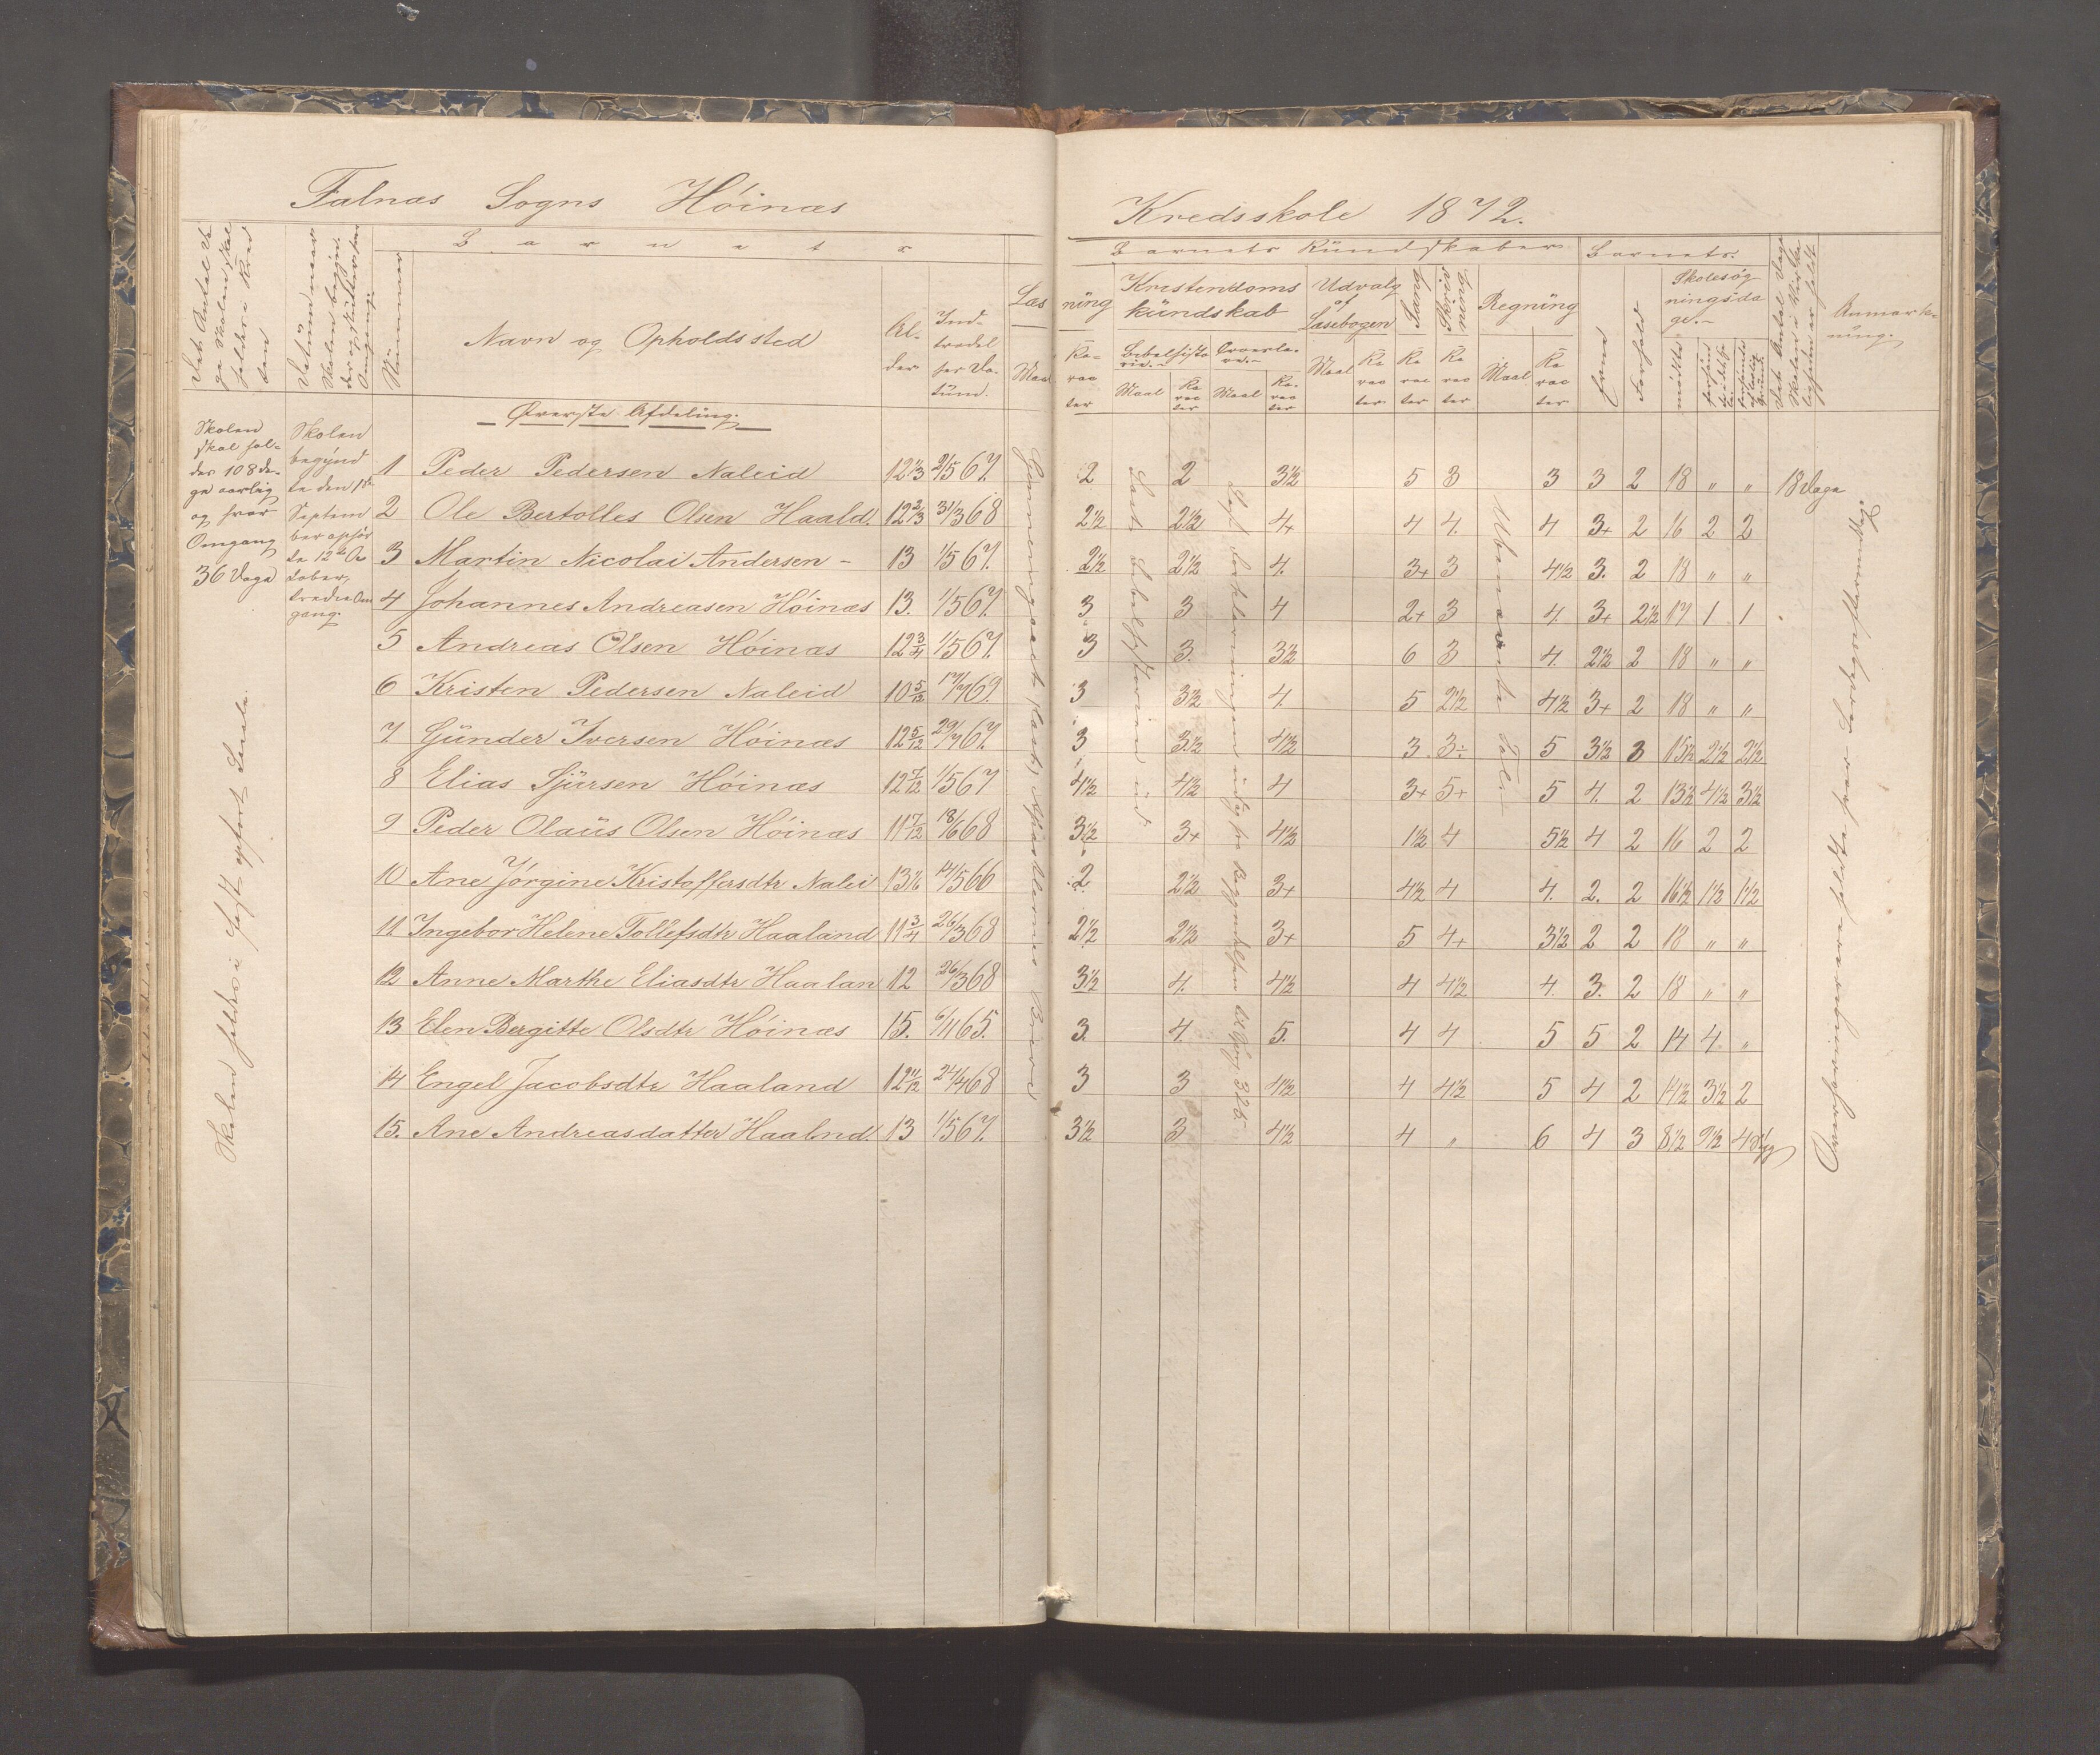 Falnæs Sogns Höinæs
Kredsskole 1872.
Barnets
Barnets Kündskaber
Barnets
Nümmer
Navn og Opholdssted
Al-
der
Ind-
trædel
ses Da-
tüm.
Læs
ning
Kristendoms
kündskab
Udvalg
af
Læsebogen
Sang
Skriv
ning
Regning
Evne
Forhold
Skolesøg
ningsda
ge.
Anmærk-
ning.
Maal
Ka-
rac
ter
Maal
Ka
rac
ter
Maal
Ka-
rac
ter
Maal
Ka
rac
ter
Ka
rac
ter
Ka
rac
ter
Maal
Ka
rac
ter
mødte
Øverste Afdeling.
Skolen
skal hol-
des 108 da-
ge aarlig
og hver
Omgang
36 Dage
Skolen
begÿnd
te den 1ste
Septem
ber ophør
te 12te Oc
tober,
tredie Om
gang.
1 Peder Pedersen Naleid 12 1/3 2/5 67. 2 2 3½ 5 3 3 3 2 18 " " 18 Dage
2 Ole Bertolles Olsen Haald. 12 2/3 31/3 68 2½ 2½ 4 4 4. 4 3+ 2 16 2 2
3 Martin Nicolai Andersen - 13 1/5 67. 2½ 2½ 4. 3+ 3 4½ 3. 2 18 " "
4 Johannes Andreasen Höinæs 13. 1/5 67. 3 3 4 2+ 3 4. 3+ 2½ 17 1 1
5 Andreas Olsen Höinæs 12 3/4 1/5 67. 3 3. 3½ 6 3 4. 2½ 2 18 " "
6 Kristen Pedersen Naleid 10 5/12 17/7 69. 3 3½ 4. 5 2½ 4½ 3+ 2 18 " "
7 Günder Iversen Höinæs 12 5/12 29/7 67. 3 3½ 4½ 3 3÷ 5 3½ 3 15½ 2½ 2½
8 Elias Sjürsen Höinæs 12 7/12 1/5 67 4½ 4½ 4 3+ 5+ 5 4. 2 13½ 4½ 3½
9 Peder Olaüs Olsen Höinæs 11 7/12 18/6 68 3½ 3+ 4½ 1½ 4 5½ 4 2 16 2 2
10 Ane Jörgine Kristoffersdtr Nalei 13 1/6 14/5 66 2 2½ 3+ 4½ 4 4. 2. 2 16½ 1½ 1½
11 Ingebor Helene Tollefsdtr Haaland 11 3/4 26/3 68 2½ 2½ 3+ 5 4+ 3½ 2 2 18 " "
12 Anne Marthe Eliasdtr Haalan 12 26/3 68 3½ 4. 4½ 4 4½ 4. 3. 2 18 " "
13 Elen Bergitte Olsdtr Höinæs 15. 6/11 65. 3. 4. 5. 4 4 5 5 2 14 4 "
14 Engel Jacobsdtr Haaland 12 11/12 24/4 68 3 3 4½ 4 4½ 5 4 2 14½ 3½ 2
15. Ane Andreasdatter Haalnd. 13 1/5 67. 3½ 3 4½ 4 " 6 4 3 8½ 9½ 4 syg
Skolen holdes i